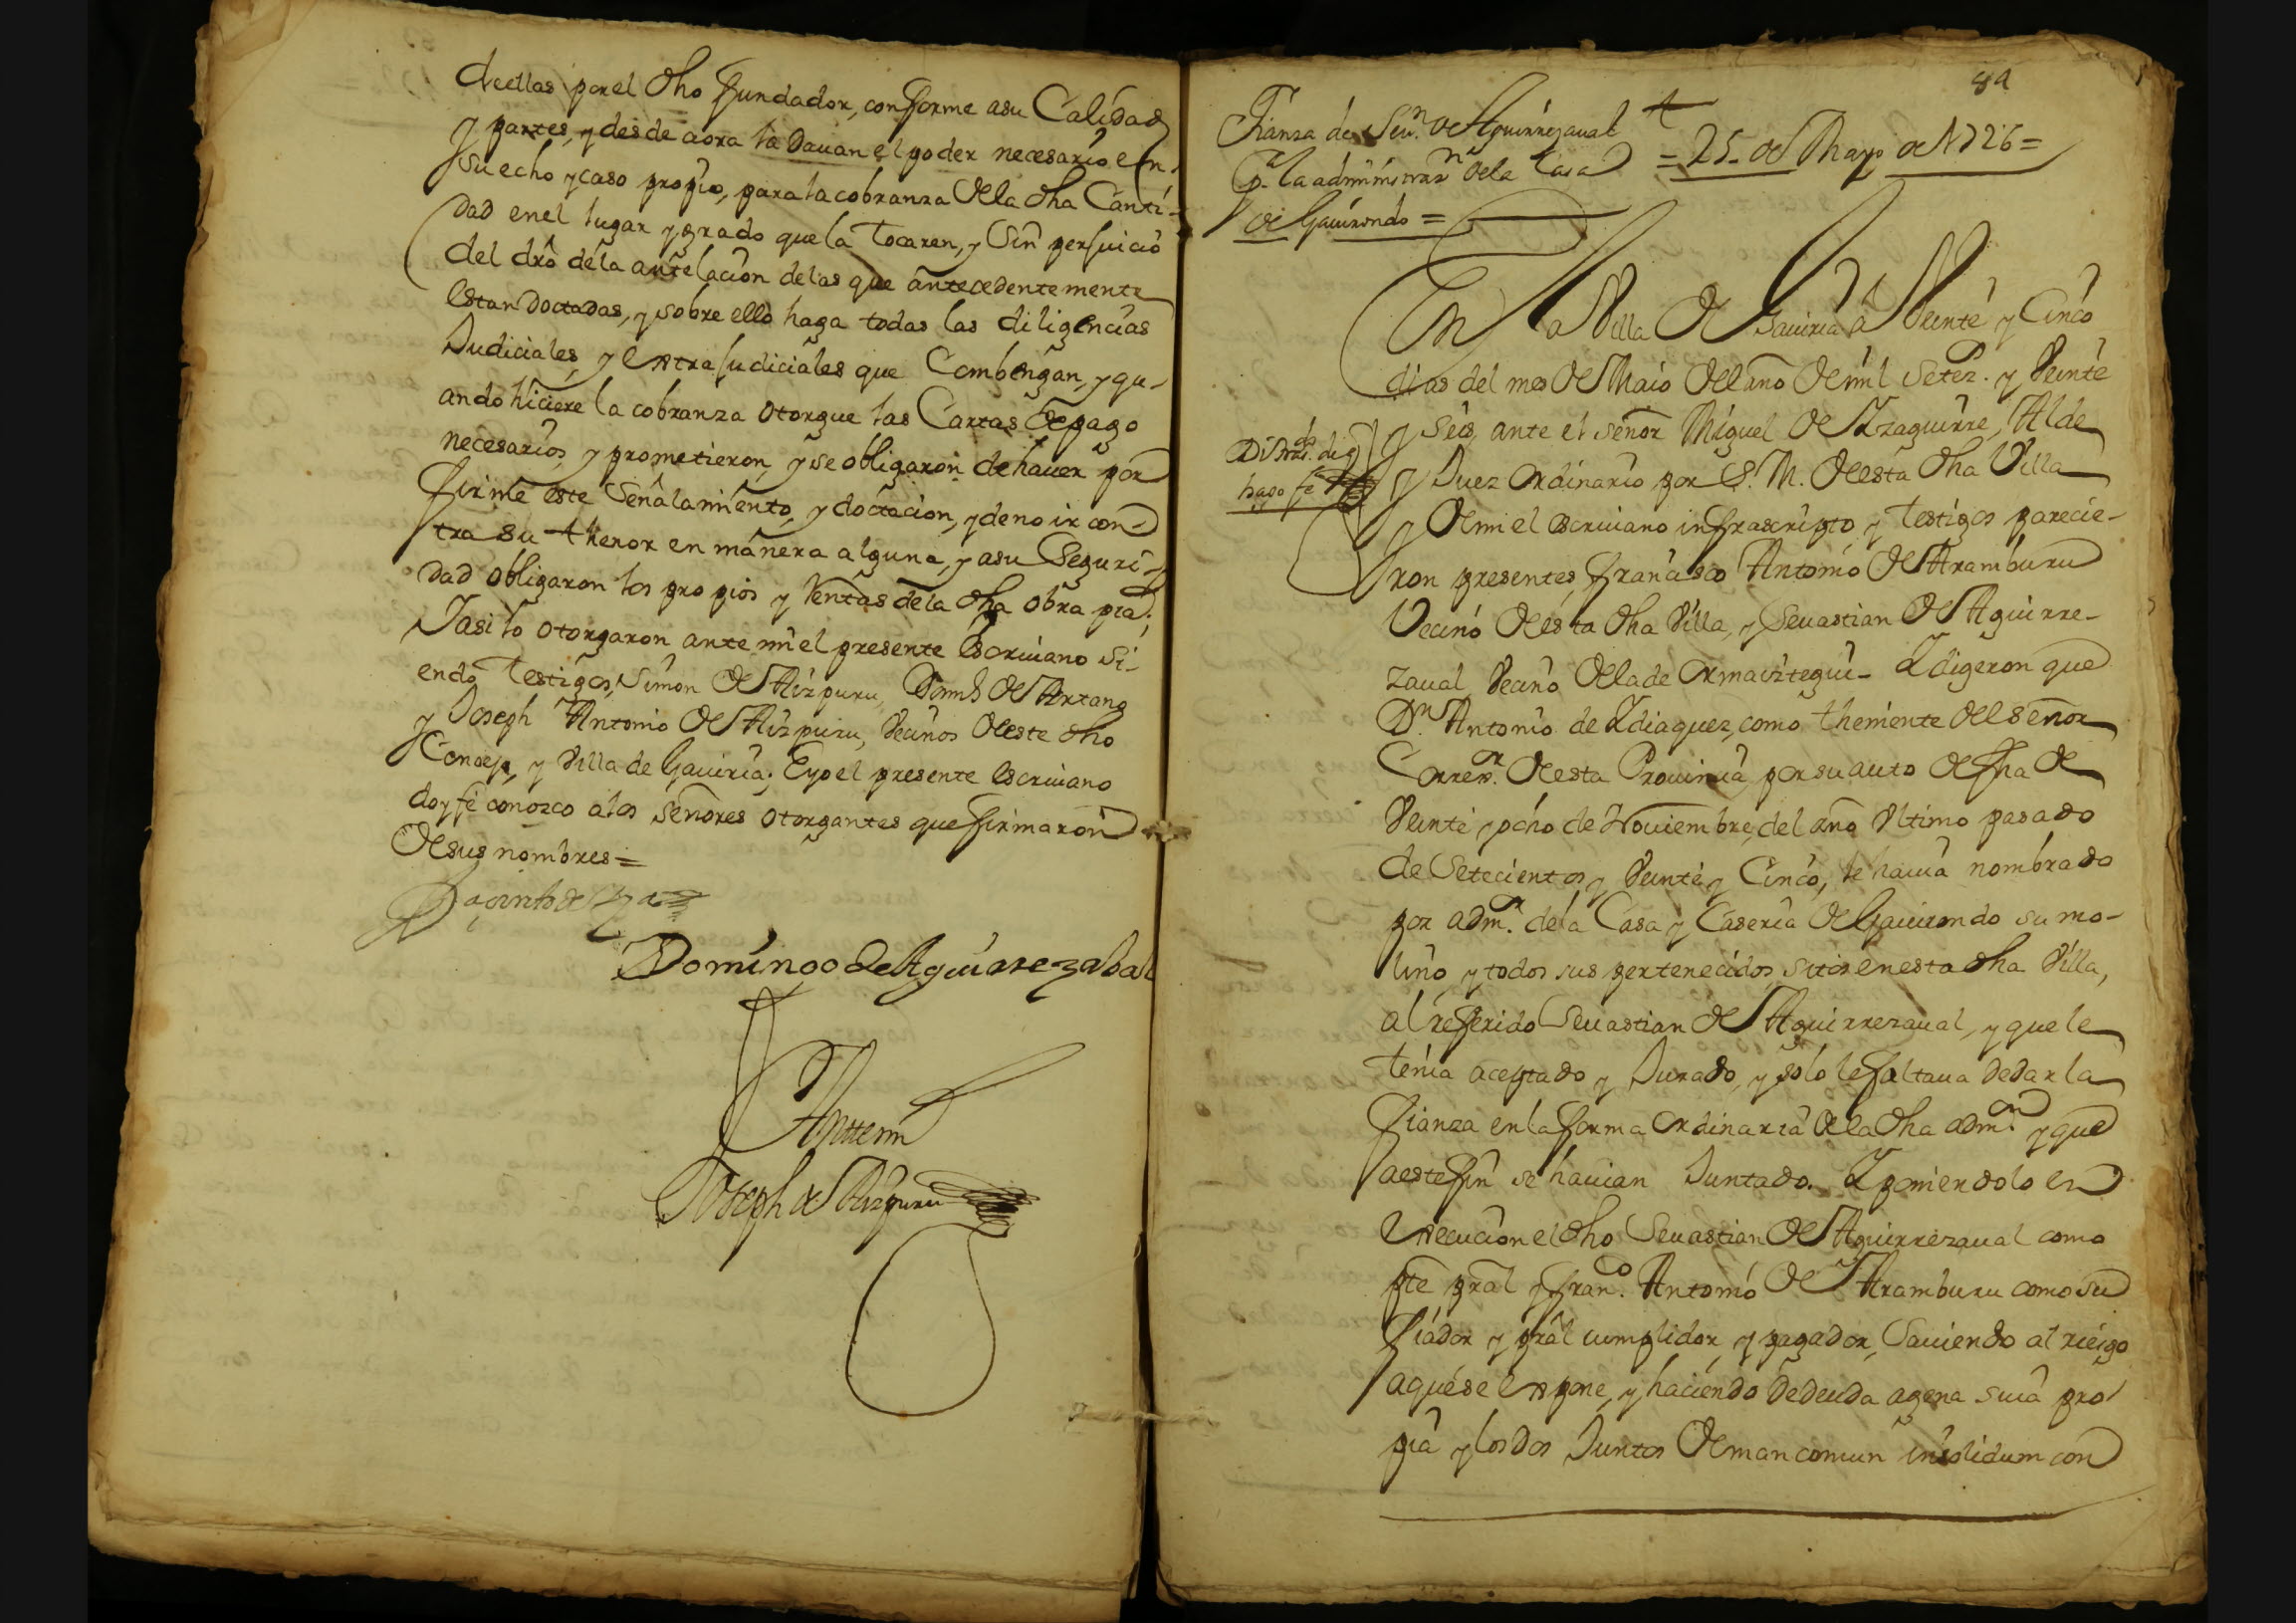 de ellas por el dho fundador, conforme asu Calidad
y partes, y desde aora la Davan el poder necesario en
su echo y caso propio, para la cobranza de la dha Canti-
dad en el lugar y grado que la tocaren, y sin perjuicio
del dro de la antelacion de las que antecedentemente
estan doctadas, y sobre ello haga todas las diligencias
Judiciales, y extrajudiciales que Combengan, y qu-
ando hiciere la cobranza otorgue las Cartas de pago
necesarios, y prometieron, y se obligaron de haver por
firme este señalamiento, y doctacion, y de no ir con-
tra su thenor en manera alguna, y asu Seguri-
dad obligaron los propios y Rentas de la dha obra pia;
Y asi lo otorgaron ante mi el presente escrivano si-
endo testigos, Simon de Aizpuru, Domº de Artang
y Joseph Antonio de Aizpuru, vecinos de este dho
Concejo, y Villa de Gaviria; E yo el presente escrivano
doy fe conozco a los señores otorgantes que firmaron
de sus nombres =
Domingo de Aguirezabal
Antte mi
Joseph de Aizpuru
84
Fianza de Sevn de Aguirrezaval
pª la administrasn de la Casa
de Gavirondo =
= 25 de Mayo de 1726 =
En la Villa de Gaviria a Veinte y Cinco
dias del mes de Maio del año de mil Setez. y Veinte
y Seis, ante el señor Miguel de Yzaguirre, Alde
y Juez ordinario por S. M. de esta dha Villa
y de mi el escrivano infrascripto y testigos parecie-
ron presentes, francisco Antonio de Aramburu
Vecino de esta dha Villa, y Sevastian de Aguirre-
zaval Vecino de la de Ormaiztegui- Y digeron que
Dn Antonio de Ydiaquez, como theniente del señor
Correr. de esta Provincia, por su auto de fha de
Veinte y ocho de Noviembre, del año Vltimo pasado
de Setecientos y Veinte y Cinco, le havia nombrado
por admr. de la Casa y Caseria de Gavirondo su mo-
lino y todos sus pertenecidos, sitos en esta dha Villa,
al referido Sevastian de Aguirrezaval, y que le
tenia aceptado y Jurado, y solo le faltava de dar la
fianza en la forma ordinaria de la dha admn. y que
a este fin se havian Juntado. Y poniendolo en
execucion el dho Sevastian de Aguirrezaval como
pte pral y franco. Antonio de Aramburu como su
fiador y pral cumplidor, y pagador, Saviendo al riesgo
a que se expone, y haciendo de deuda agena suia pro-
pia y los dos Juntos de mancomun insolidum con